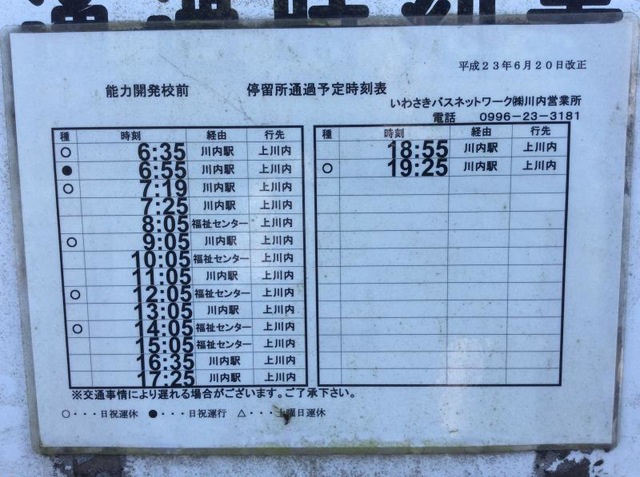 通過時刻表
平成23年6月20日改正
能力開発校前　停留所通過予定時刻表
いわさきバスネットワーク㈱川内営業所
電話　0996-23-3181
種 時刻 経由 行先
○ 6:35 川内駅 上川内
● 6:55 川内駅 上川内
○ 7:19 川内駅 上川内
7:25 川内駅 上川内
8:05 福祉センター 上川内
○ 9:05 川内駅 上川内
10:05 福祉センター 上川内
11:05 川内駅 上川内
○ 12:05 福祉センター 上川内
13:05 川内駅 上川内
○ 14:05 福祉センター 上川内
15:05 福祉センター 上川内
16:35 川内駅 上川内
17:25 川内駅 上川内
種 時刻 経由 行先
18:55 川内駅 上川内
○ 19:25 川内駅 上川内
※交通事情により遅れる場合がございます。ご了承下さい。
○・・・日祝運休　●・・・日祝運行　△・・・土曜日運休